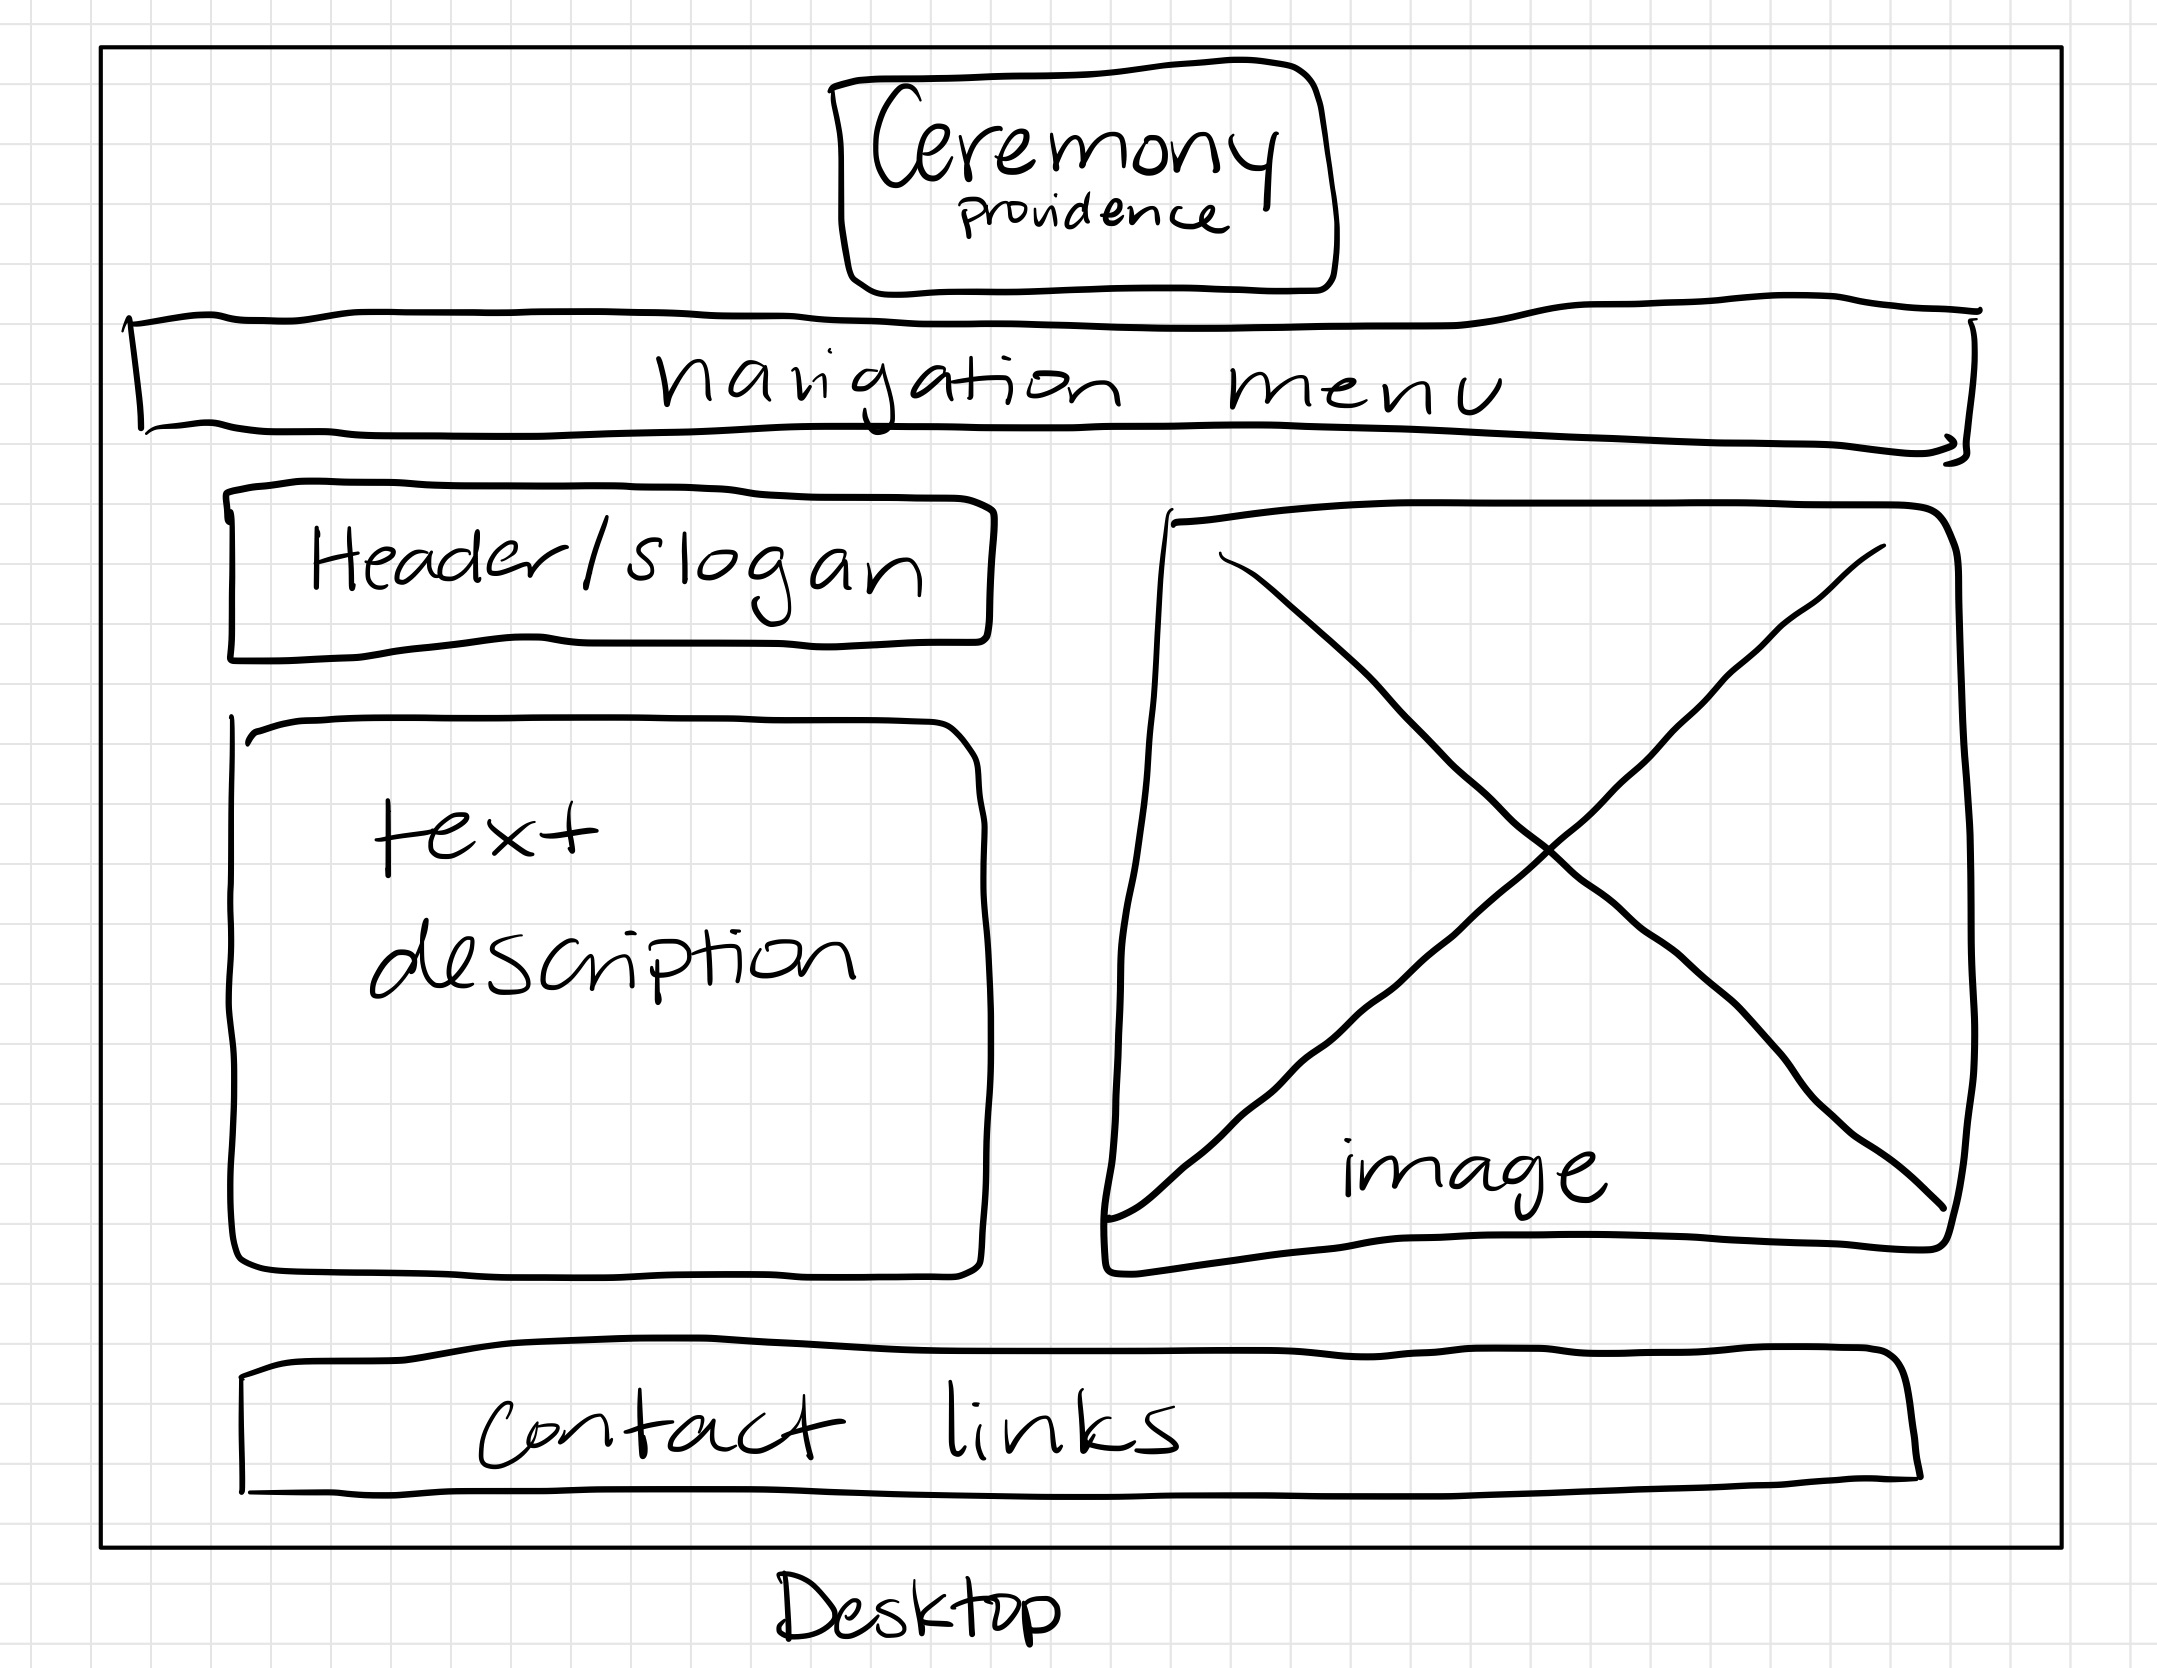 Ceremony
providence
navigation menu
Header/slogan
text
description
image
contact links
Desktop